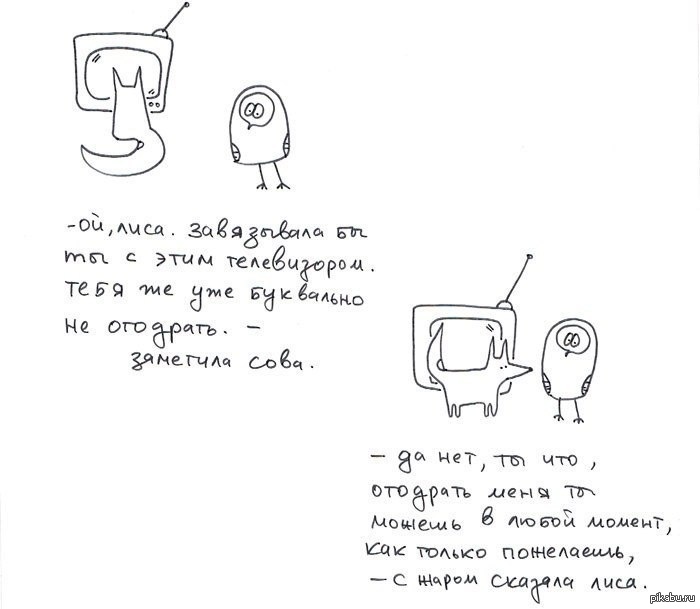 -ой, лиса. завязывала бы
ты с этим телевизором.
тебя же уже буквально
не отодрать. -
заметила сова.
- да нет, ты что,
отодрать меня ты
можешь в любой момент,
как только пожелаешь,
- с жаром сказала лиса.
pikabu.ru